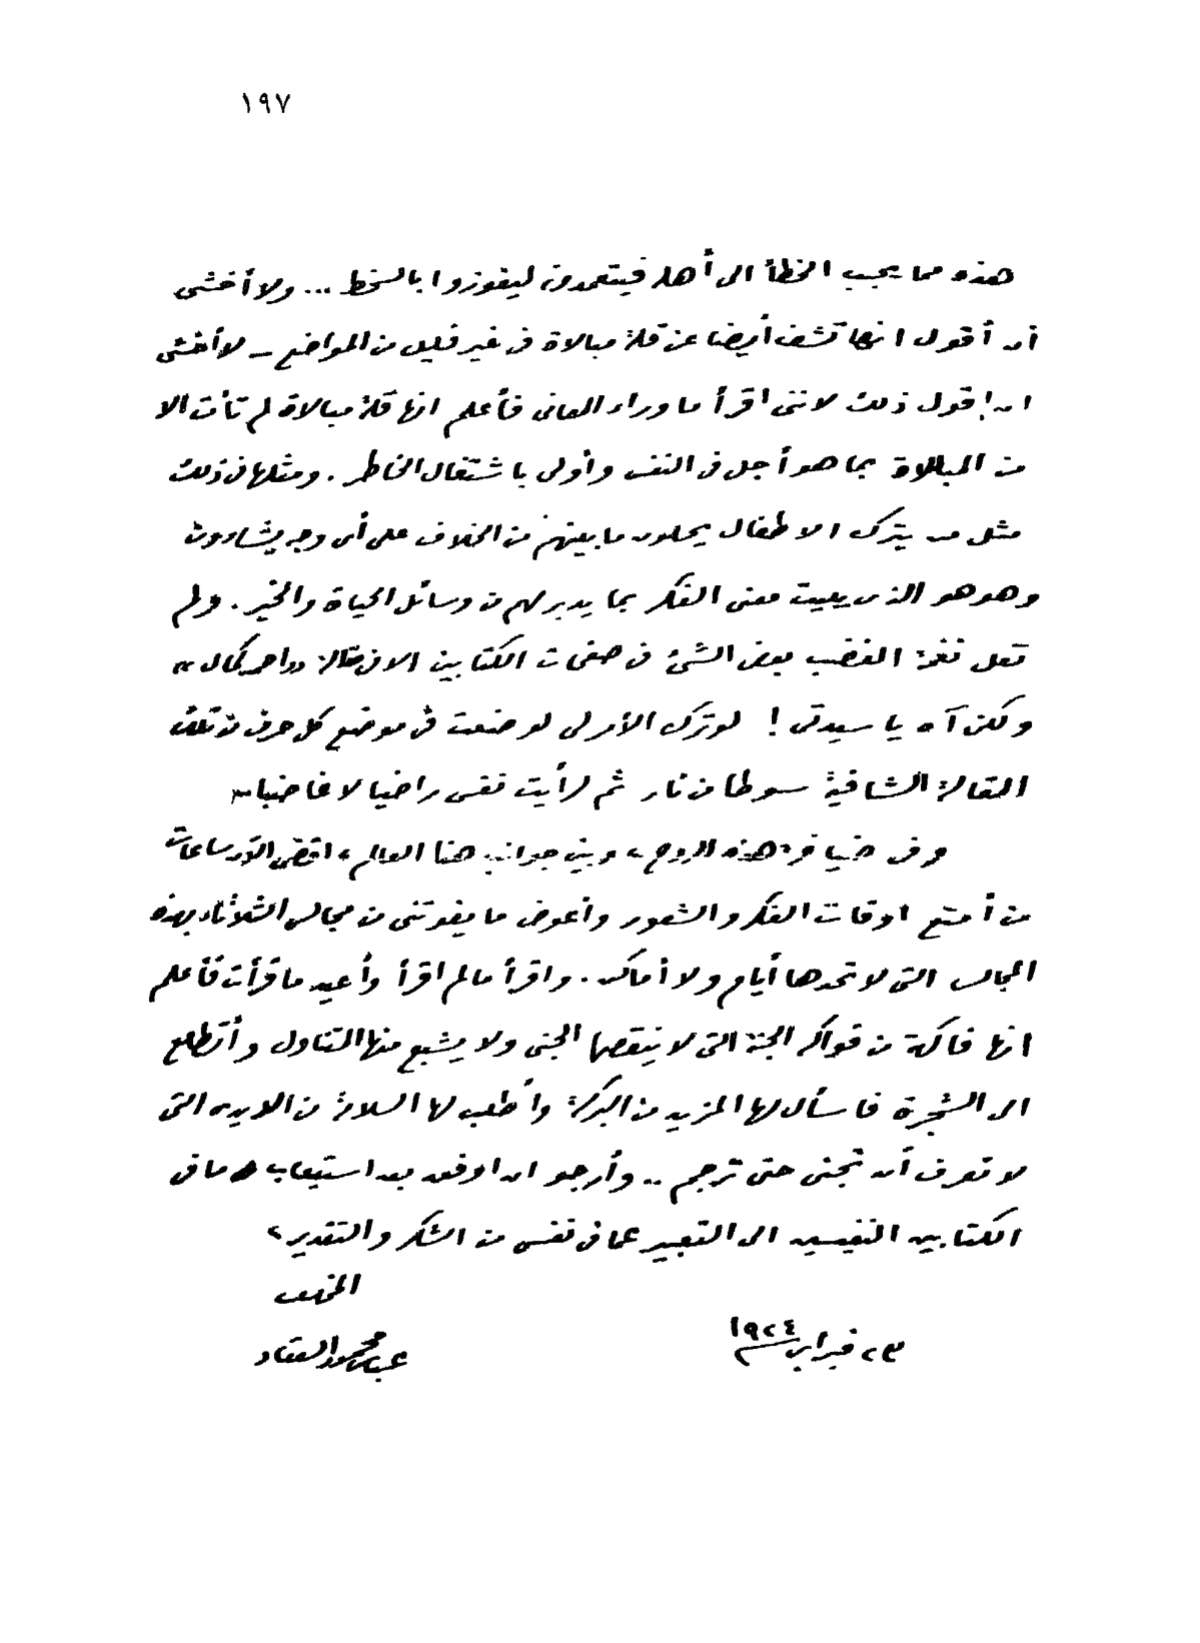 ١٩٧
هذه مما يحبب الخطأ الى أهله فيتعمدونه ليفوزوا بالسخط ... ولا أخشى
أن أقول انها تشف أيضا عن قلة مبالاة فى غير قليل من المواضع ـ لا أخشى
ان أقول ذلك لاننى اقرأ ما وراء المعانى فأعلم انها قلة مبالاة لم تأت الا
من المبالاة بما هو أجل فى النفس وأولى باشتغال الخاطر . ومثلها فى ذلك
مثل من يترك الاطفال يحلون ما بينهم من الخلاف على أى وجه يشاءون
وهو هو الذى يعنت معنى الفكر بما يدبر لهم من وسائل الحياة والخير . ولم
تعل نغمة الغضب بعض الشئ فى صفحات الكتابين الا فى مقالة «احمد كمال»
ولكن آه يا سيدتى ! لو ترك الأمر لى لوضعت فى موضع كل حرف من تلك
المقالة الشافية سوطا من نار ثم لرأيت نفسى راضيا لا غاضبا
وفى ضيافة «هذه الروح» وبين جوانب هذا العالم، اقضى الآن ساعات
من أمتع اوقات الفكر والشعور وأعوض ما يفوتنى من مجالس الثلاثاء بهذه
المجالس التى لا تحدها أيام ولا أماكن . واقرأ ما لم اقرأ وأعيد ما قرأت فأعلم
انها فاكهة من فواكه الجنة التى لا ينقصها الجنى ولا يشبع منها المتناول وأتطلع
الى الشجرة فاسأل لها المزيد من البركة وأطلب لها السلامة من الايدى التى
لا تعرف أن تجنى حتى ترجم .. وأرجو ان اوفق بعد استيعاب ما فى
الكتابين النفيسين الى التعبير عما فى نفسى من الشكر والتقدير،
المخلص
٢٣ فبراير سنة ١٩٢٤
عباس محمود العقاد